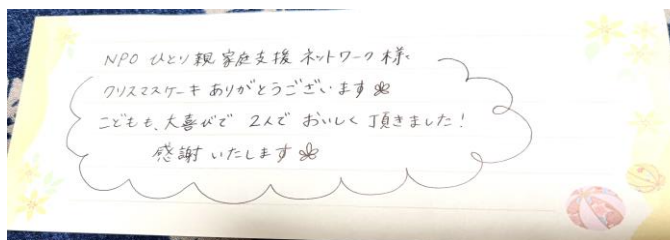 NPO ひとり親家庭支援ネットワーク様
クリスマスケーキありがとうございます
こどもも、大喜びで 2人で おいしく頂きました!
感謝いたします